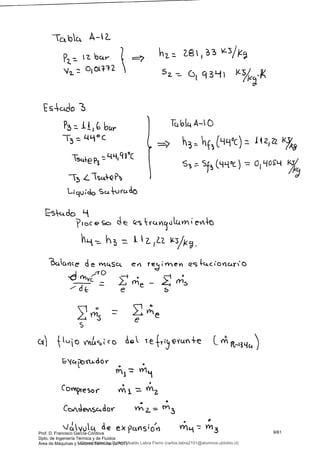 Tabla A-12
P₂ = 12 bar
V₂ = 0,01772
⇒ h₂ = 281,33 kJ/kg
S₂ = 0,9341 kJ/kg·K
Estado 3
P₃ = 11,6 bar
T₃ = 44ºC
Tsat@P₃ = 44,91ºC
T₃ < Tsat@P₃
Líquido Saturado
Tabla A-10
⇒ h₃ = hf₃ (44ºC) = 112,22 kJ/kg
S₃ = Sf₃ (44ºC) = 0,4054 kJ/kg
Estado 4
Proceso de estrangulamiento
h₄ = h₃ = 112,22 kJ/kg.
Balance de masa en regimen estacionario
d mvc / dt = Σ ṁe - Σ ṁs
Σ ṁs = Σ ṁe
a) flujo másico del refrigerante (ṁ R-134a)
Evaporador ṁ₁ = ṁ₄
Compresor ṁ₁ = ṁ₂
Condensador ṁ₂ = ṁ₃
Válvula de expansión ṁ₄ = ṁ₃
Prof. D. Francisco García-Córdova
Dpto. de Ingeniería Térmica y de Fluidos
Área de Máquinas y Motores Térmicos (UPCT)
9/81